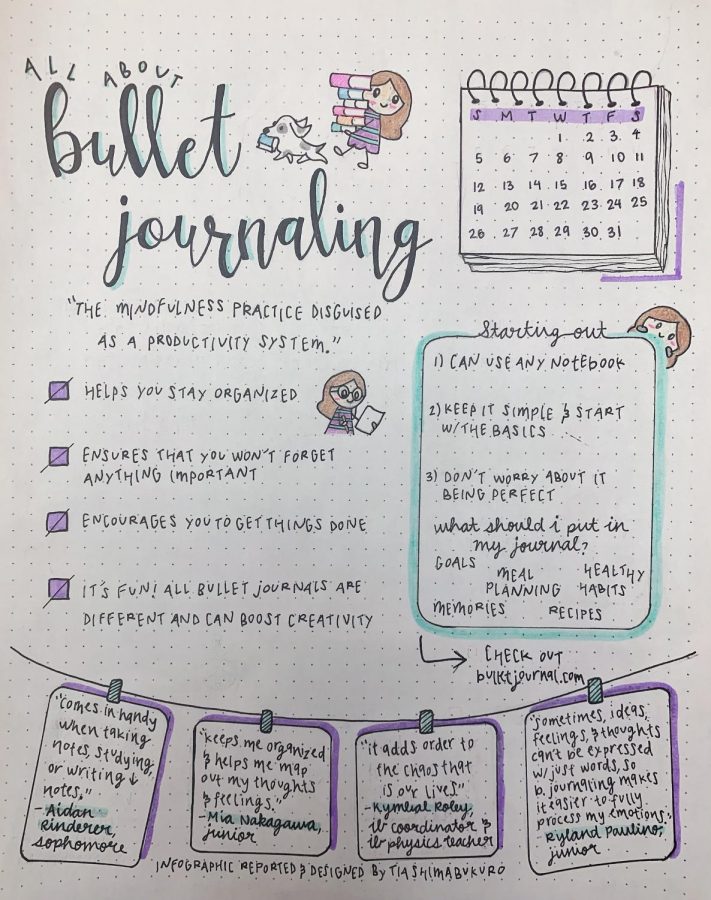 ALL ABOUT
bullet
journaling
S M T W T F S
1 2 3 4
5 6 7 8 9 10 11
12 13 14 15 16 17 18
19 20 21 22 23 24 25
26 27 28 29 30 31
"THE MINDFULNESS PRACTICE DISGUISED
AS A PRODUCTIVITY SYSTEM."
HELPS YOU STAY ORGANIZED
ENSURES THAT YOU WON'T FORGET
ANYTHING IMPORTANT
ENCOURAGES YOU TO GET THINGS DONE
IT'S FUN! ALL BULLET JOURNALS ARE
DIFFERENT AND CAN BOOST CREATIVITY
Starting out
1) CAN USE ANY NOTEBOOK
2) KEEP IT SIMPLE & START
W/ THE BASICS
3) DON'T WORRY ABOUT IT
BEING PERFECT
what should i put in
my journal?
GOALS
MEAL
PLANNING
HEALTHY
HABITS
MEMORIES
RECIPES
CHECK OUT
bulletjournal.com
"comes in handy
when taking
notes, studying,
or writing ↓
notes,"
- Aidan
Rinderer,
sophomore
"keeps me organized
& helps me map
out my thoughts
& feelings."
- Mia Nakagawa,
junior
"it adds order to
the chaos that
is our lives."
- Kymbal Roley,
ib coordinator &
ib physics teacher
"sometimes, ideas,
feelings, & thoughts
can't be expressed
w/ just words, so
b. journaling makes
it easier to fully
process my emotions."
- Ryland Paulino,
junior
INFOGRAPHIC REPORTED & DESIGNED BY TIA SHIMABUKURO